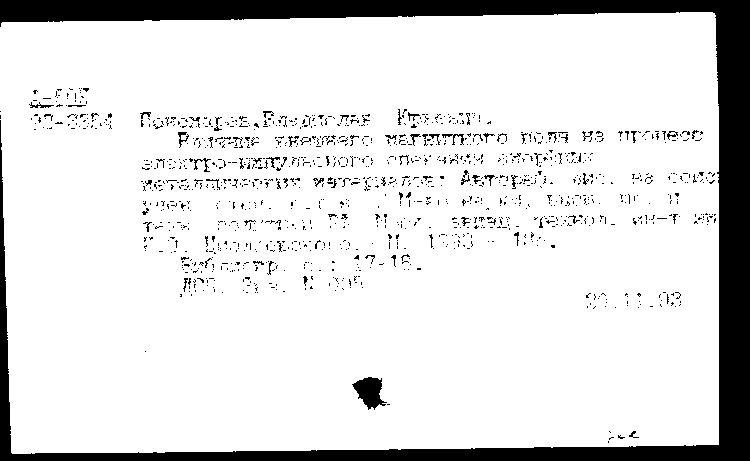 Пономарев, Владислав Юрьевич.
Влияние внешнего магнитного поля на процесс
электро-импульсного спекания аморфных
металлических материалов: Автореф. дис. на соиск
учен. степ. к.т.н. / М-во науки, высш. шк. и
техн. политики РФ. Моск. авиац. технол. ин-т им
К.Э. Циолковского. - М. 1993 -
Библиогр. с.: 17-18.
N 005